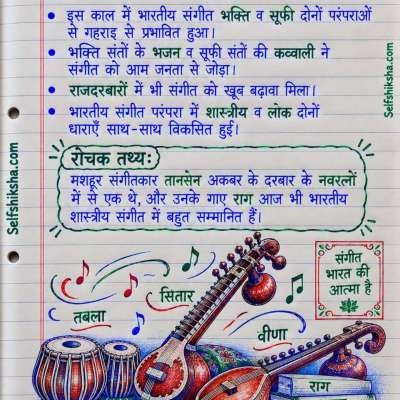 इस काल में भारतीय संगीत भक्ति व सूफी दोनों परंपराओं
से गहराइ से प्रभावित हुआ।
भक्ति संतों के भजन व सूफी संतों की कव्वाली ने
संगीत को आम जनता से जोड़ा।
राजदरबारों में भी संगीत को खूब बढ़ावा मिला।
भारतीय संगीत परंपरा में शास्त्रीय व लोक दोनों
धाराएँ साथ-साथ विकसित हुई।
Selfshiksha.com
Selfshiksha.com
रोचक तथ्य:
मशहूर संगीतकार तानसेन अकबर के दरबार के नवरत्नों
में से एक थे, और उनके गाए राग आज भी भारतीय
शास्त्रीय संगीत में बहुत सम्मानित हैं।
संगीत
भारत की
आत्मा है
तबला
सितार
वीणा
राग